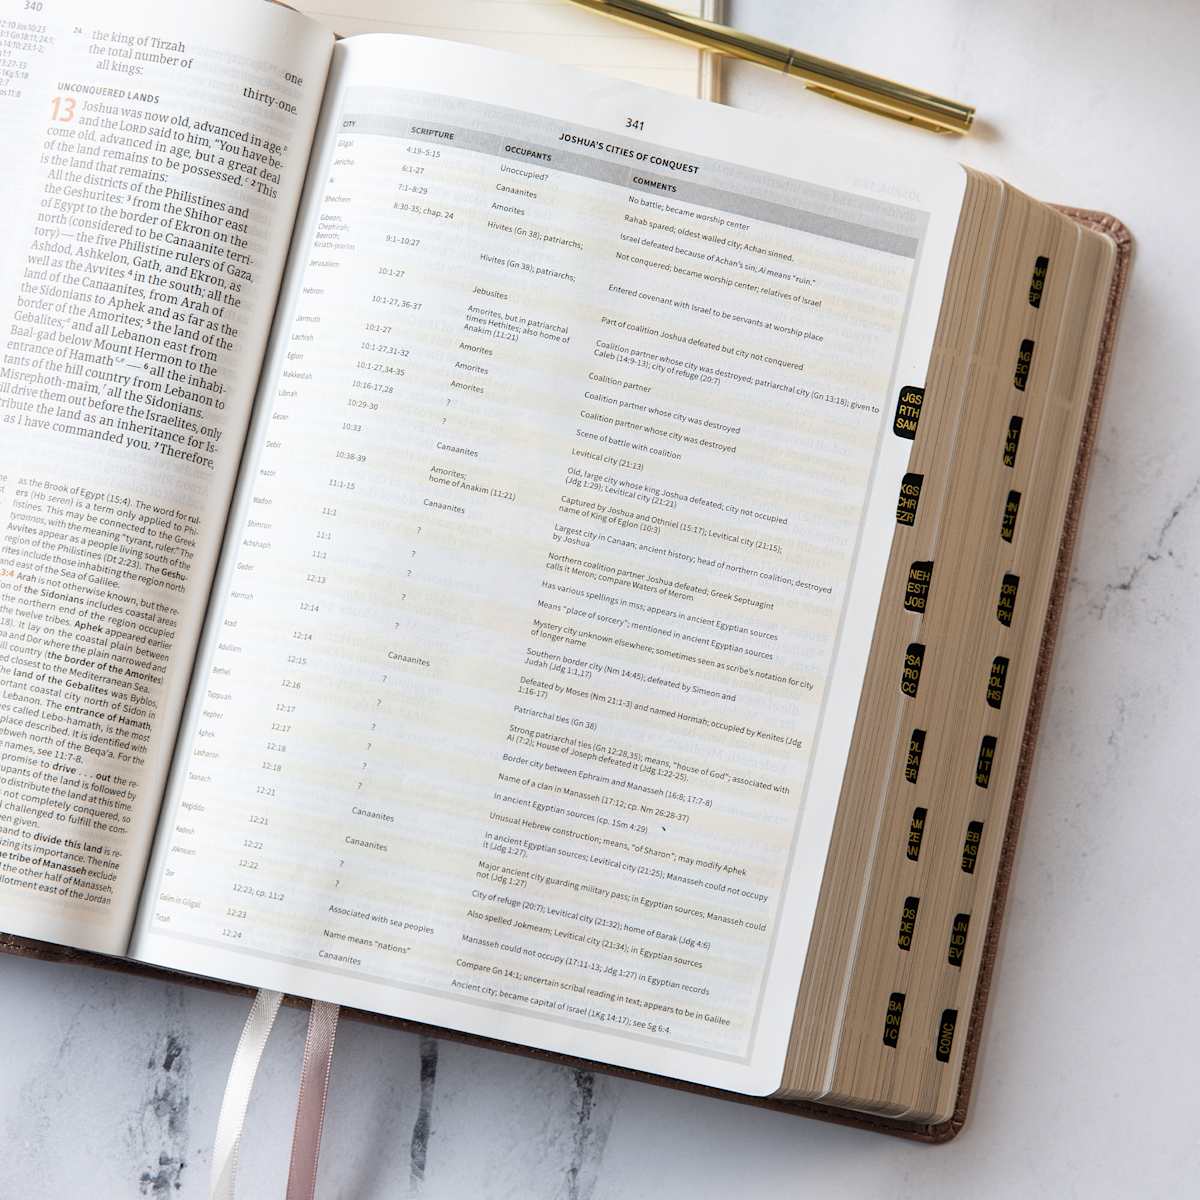 340
24 the king of Tirzah one
the total number of
all kings: thirty-one.
UNCONQUERED LANDS
13 Joshua was now old, advanced in age,
and the LORD said to him, "You have be-
come old, advanced in age, but a great deal
of the land remains to be possessed. 2 This
is the land that remains:
All the districts of the Philistines and
the Geshurites: 3 from the Shihor east
of Egypt to the border of Ekron on the
north (considered to be Canaanite terri-
tory) — the five Philistine rulers of Gaza,
Ashdod, Ashkelon, Gath, and Ekron, as
well as the Avvites 4 in the south; all the
land of the Canaanites, from Arah of
the Sidonians to Aphek and as far as the
border of the Amorites; 5 the land of the
Gebalites; and all Lebanon east from
Baal-gad below Mount Hermon to the
entrance of Hamath — 6 all the inhabi-
tants of the hill country from Lebanon to
Misrephoth-maim, all the Sidonians.
ill drive them out before the Israelites, only
ribute the land as an inheritance for Is-
as I have commanded you. 7 Therefore,
as the Brook of Egypt (15:4). The word for rul-
ers (Hb seren) is a term only applied to Phi-
listines. This may be connected to the Greek
tyrannos, with the meaning "tyrant, ruler." The
Avvites appear as a people living south of the
region of the Philistines (Dt 2:23). The Geshu-
rites include those inhabiting the region north
and east of the Sea of Galilee.
3:4 Arah is not otherwise known, but the re-
on of the Sidonians includes coastal areas
the northern end of the region occupied
the twelve tribes. Aphek appeared earlier
18). It lay on the coastal plain between
pa and Dor where the plain narrowed and
ill country (the border of the Amorites)
ed closest to the Mediterranean Sea.
he land of the Gebalites was Byblos,
ortant coastal city north of Sidon in
Lebanon. The entrance of Hamath,
es called Lebo-hamath, is the most
place described. It is identified with
ebweh north of the Beqa'a. For the
names, see 11:7-8.
promise to drive . . . out the re-
upants of the land is followed by
o distribute the land at this time.
not completely conquered, so
challenged to fulfill the com-
en given.
mand to divide this land is re-
izing its importance. The nine
he tribe of Manasseh exclude
the other half of Manasseh,
llotment east of the Jordan
341
JOSHUA'S CITIES OF CONQUEST
CITY SCRIPTURE OCCUPANTS COMMENTS
Gilgal 4:19–5:15 Unoccupied? No battle; became worship center
Jericho 6:1-27 Canaanites Rahab spared; oldest walled city; Achan sinned.
Ai 7:1–8:29 Amorites Israel defeated because of Achan's sin; Ai means "ruin."
Shechem 8:30-35; chap. 24 Hivites (Gn 38); patriarchs; Not conquered; became worship center; relatives of Israel
Gibeon; Chephirah; Beeroth; Kiriath-jearim 9:1–10:27 Hivites (Gn 38); patriarchs; Entered covenant with Israel to be servants at worship place
Jerusalem 10:1-27 Jebusites Part of coalition Joshua defeated but city not conquered
Hebron 10:1-27, 36-37 Amorites, but in patriarchal
times Hethites; also home of
Anakim (11:21) Coalition partner whose city was destroyed; patriarchal city (Gn 13:18); given to
Caleb (14:9-13); city of refuge (20:7)
Jarmuth 10:1-27 Amorites Coalition partner
Lachish 10:1-27,31-32 Amorites Coalition partner whose city was destroyed
Eglon 10:1-27,34-35 Amorites Coalition partner whose city was destroyed
Makkedah 10:16-17,28 ? Scene of battle with coalition
Libnah 10:29-30 ? Levitical city (21:13)
Gezer 10:33 Canaanites Old, large city whose king Joshua defeated; city not occupied
(Jdg 1:29); Levitical city (21:21)
Debir 10:38-39 Amorites;
home of Anakim (11:21) Captured by Joshua and Othniel (15:17); Levitical city (21:15);
name of King of Eglon (10:3)
Hazor 11:1-15 Canaanites Largest city in Canaan; ancient history; head of northern coalition; destroyed
by Joshua
Madon 11:1 ? Northern coalition partner Joshua defeated; Greek Septuagint
calls it Meron; compare Waters of Merom
Shimron 11:1 ? Has various spellings in mss; appears in ancient Egyptian sources
Achshaph 11:2 ? Means "place of sorcery"; mentioned in ancient Egyptian sources
Geder 12:13 ? Mystery city unknown elsewhere; sometimes seen as scribe's notation for city
of longer name
Hormah 12:14 ? Southern border city (Nm 14:45); defeated by Simeon and
Judah (Jdg 1:1,17)
Arad 12:14 Canaanites Defeated by Moses (Nm 21:1-3) and named Hormah; occupied by Kenites (Jdg
1:16-17)
Adullam 12:15 ? Patriarchal ties (Gn 38)
Bethel 12:16 ? Strong patriarchal ties (Gn 12:28,35); means, "house of God"; associated with
Ai (7:2); House of Joseph defeated it (Jdg 1:22-25).
Tappuah 12:17 ? Border city between Ephraim and Manasseh (16:8; 17:7-8)
Hepher 12:17 ? Name of a clan in Manasseh (17:12; cp. Nm 26:28-37)
Aphek 12:18 ? In ancient Egyptian sources (cp. 1Sm 4:29)
Lasharon 12:18 ? Unusual Hebrew construction; means, "of Sharon"; may modify Aphek
Taanach 12:21 Canaanites In ancient Egyptian sources; Levitical city (21:25); Manasseh could not occupy
it (Jdg 1:27).
Megiddo 12:21 Canaanites Major ancient city guarding military pass; in Egyptian sources; Manasseh could
not (Jdg 1:27)
Kedesh 12:22 ? City of refuge (20:7); Levitical city (21:32); home of Barak (Jdg 4:6)
Jokneam 12:22 ? Also spelled Jokmeam; Levitical city (21:34); in Egyptian sources
Dor 12:23; cp. 11:2 Associated with sea peoples Manasseh could not occupy (17:11-13; Jdg 1:27) in Egyptian records
Goiim in Gilgal 12:23 Name means "nations" Compare Gn 14:1; uncertain scribal reading in text; appears to be in Galilee
Tirzah 12:24 Canaanites Ancient city; became capital of Israel (1Kg 14:17); see Sg 6:4.
JGS
RTH
SAM
KGS
CHR
EZR
NEH
EST
JOB
PSA
PRO
CONC